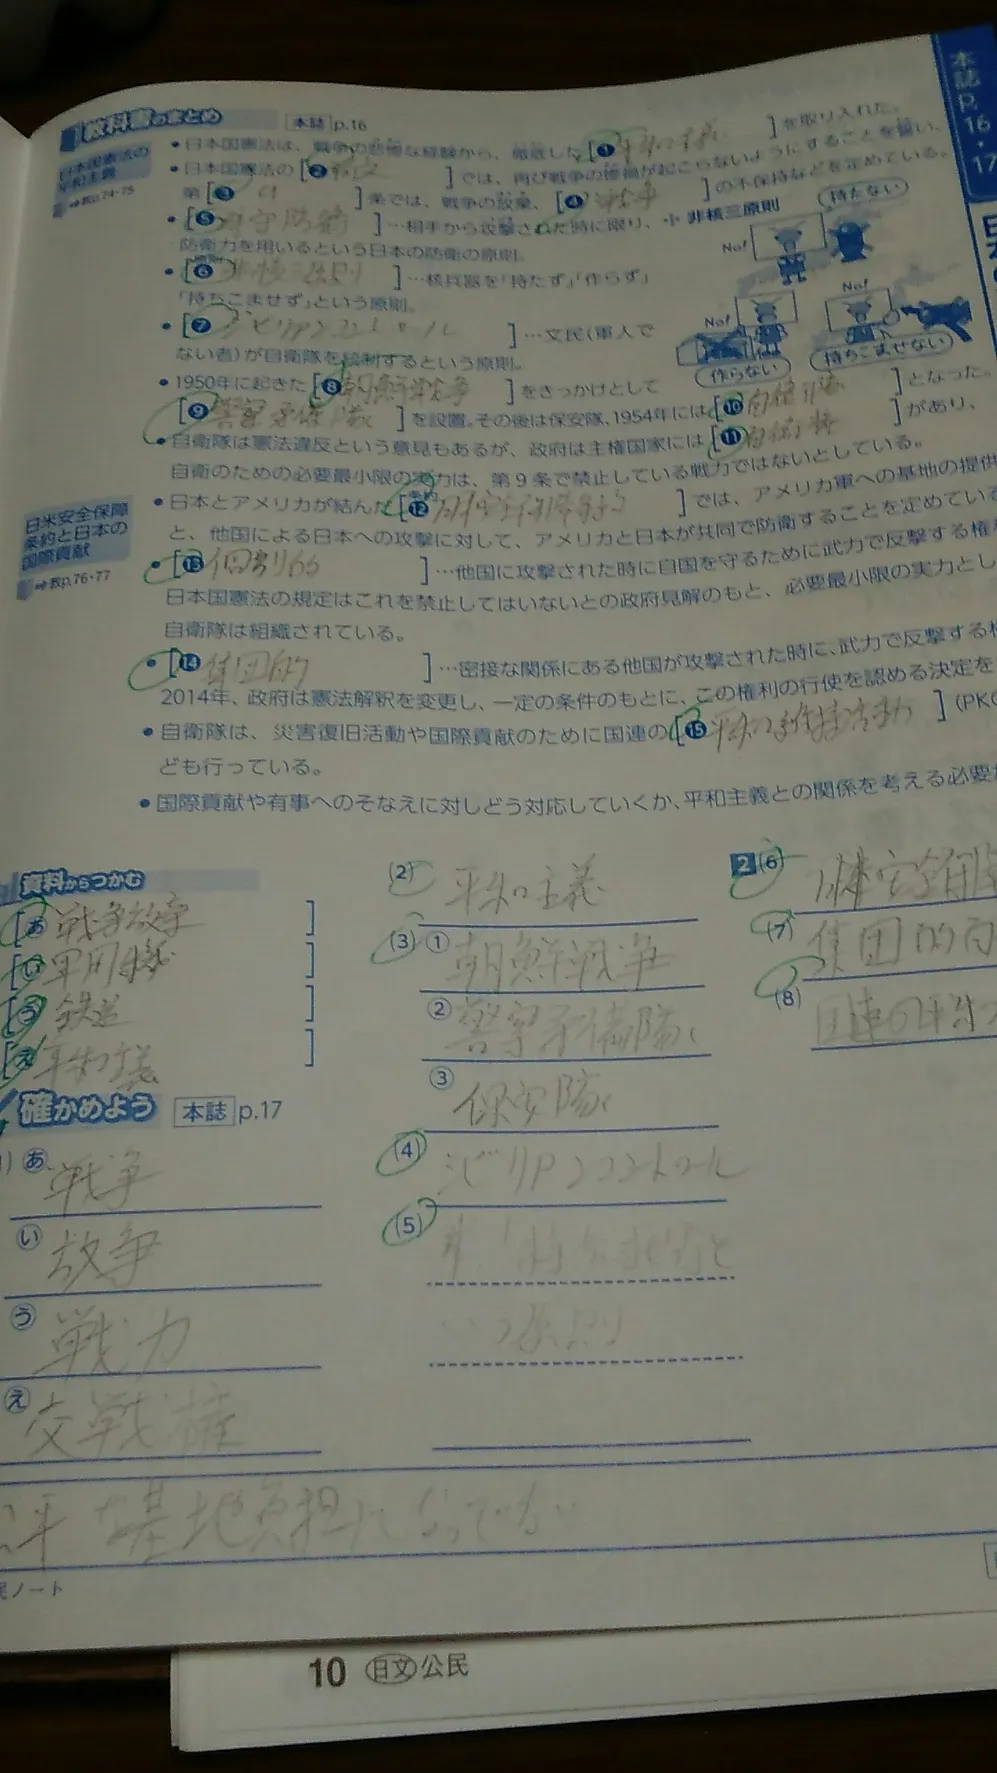 教科書のまとめ 本誌 p.16
本誌 p.16・17
日本国憲法の平和主義
➡教p.74・75
• 日本国憲法は、戦争の悲惨な経験から、徹底した[❶平和主義]を取り入れた。
• 日本国憲法の[❷前文]では、再び戦争の惨禍が起こらないようにすることを誓い、
第[❸9]条では、戦争の放棄、[❹戦争]の不保持などを定めている。
• [❺専守防衛]…相手から攻撃された時に限り、
防衛力を用いるという日本の防衛の原則。
• [❻非核三原則]…核兵器を「持たず」「作らず」
「持ちこませず」という原則。
• [❼シビリアンコントロール]…文民(軍人で
ない者)が自衛隊を統制するという原則。
非核三原則
持たない
No!
No!
No!
作らない
持ちこませない
• 1950年に起きた[❽朝鮮戦争]をきっかけとして
[❾警察予備隊]を設置。その後は保安隊、1954年には[❿自衛隊]となった。
• 自衛隊は憲法違反という意見もあるが、政府は主権国家には[⓫自衛権]があり、
自衛のための必要最小限の実力は、第9条で禁止している戦力ではないとしている。
日米安全保障条約と日本の国際貢献
➡教p.76・77
• 日本とアメリカが結んだ[⓬日米安全保障条約]では、アメリカ軍への基地の提供
と、他国による日本への攻撃に対して、アメリカと日本が共同で防衛することを定めている
• [⓭個別的]…他国に攻撃された時に自国を守るために武力で反撃する権
日本国憲法の規定はこれを禁止してはいないとの政府見解のもと、必要最小限の実力とし
自衛隊は組織されている。
• [⓮集団的]…密接な関係にある他国が攻撃された時に、武力で反撃する権
2014年、政府は憲法解釈を変更し、一定の条件のもとに、この権利の行使を認める決定を
• 自衛隊は、災害復旧活動や国際貢献のために国連の[⓯平和維持活動](PKO
ども行っている。
• 国際貢献や有事へのそなえに対しどう対応していくか、平和主義との関係を考える必要が
資料からつかむ
[あ 戦争放争]
[い 軍用機]
[う 鉄道]
[え 平和主義]
確かめよう 本誌 p.17
あ 戦争
い 放争
う 戦力
え 交戦権
(2) 平和主義
(3) ① 朝鮮戦争
② 警察予備隊
③ 保安隊
(4) シビリアンコントロール
(5)
原則
2 (6)
(7) 集団的自
(8) 国連の平和
平な基地負担になっている
民ノート
10 日文 公民